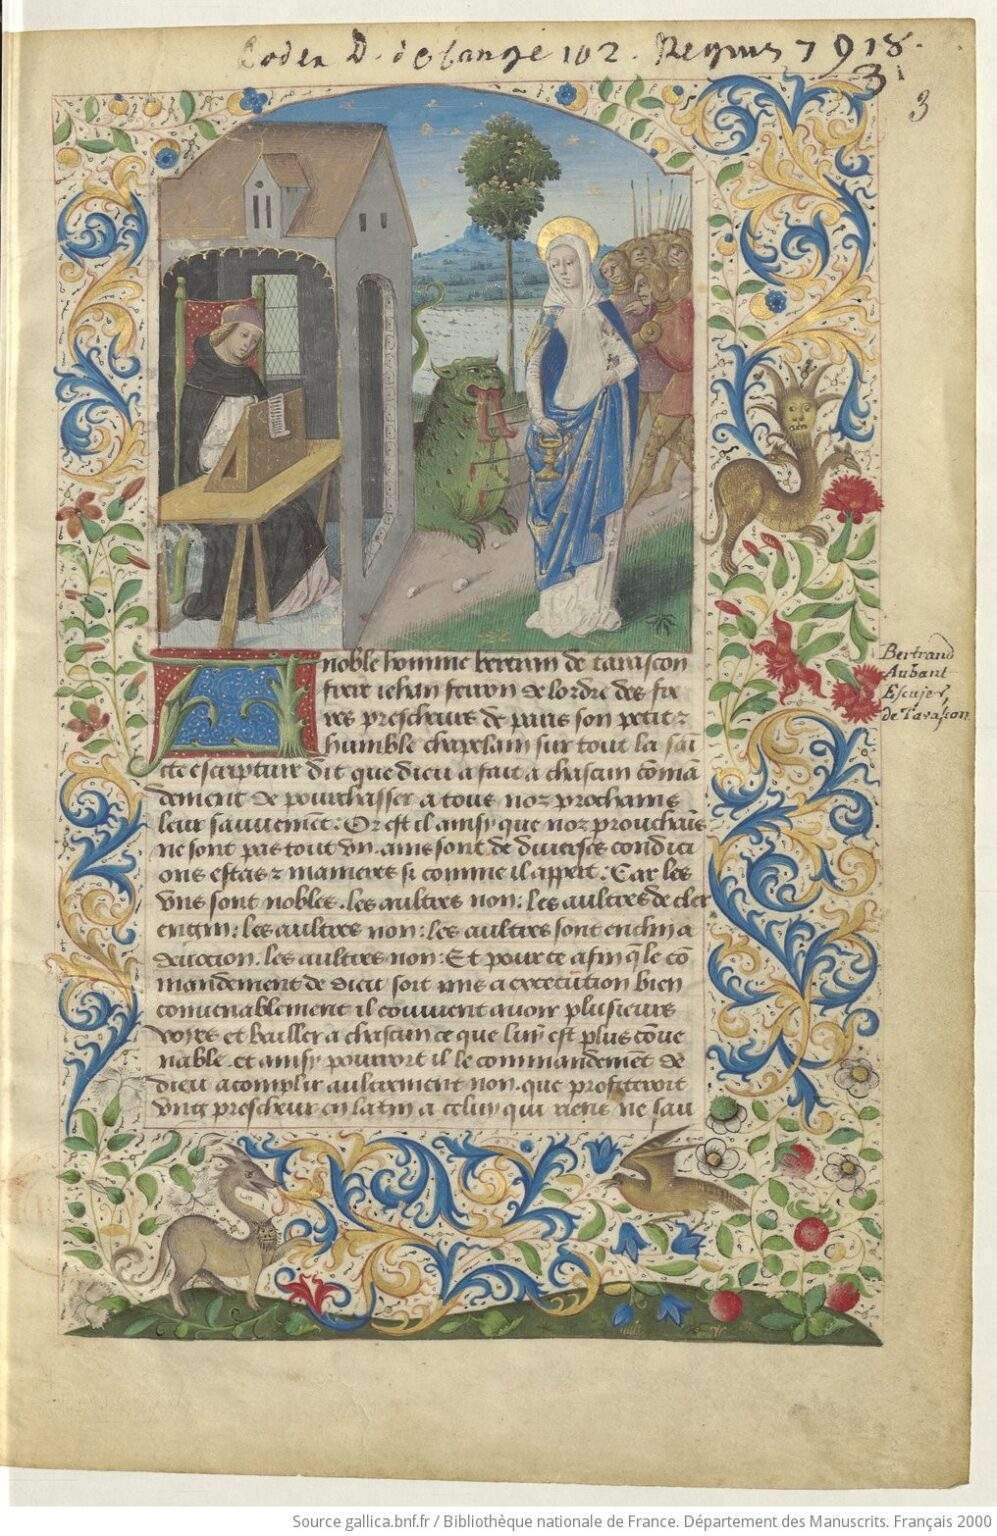 Codex D. de Cange 102. Regius 7918.
3.
3
A noble homme bertrun de tarascon
frere iehan feuron de lordre des fre
res prescheurs de paris son petit ⁊
humble chapelain sur tout la sai
cte escripture dit que dieu a fait a chascun comā
dement de pourchasser a tous noz prochains
leur sauuement : Or est il ainsy que noz prouchaīs
ne sont pas tout vn . ains sont de diuerses condici
ons estas ⁊ manieres si comme il appert . Car les
vns sont nobles . les aultres non : les aultres de cler
engin : les aultres non : les aultres sont enclin a
deuocion . les aultres non : Et pour ce afin q̄ le cō
mandement de dieu soit mis a execution bien
conuenablement il conuient auoir plusieurs
voyes et bailler a chascun ce que luy est plus cōue
nable . et ainsy pourront il le commandemēt de
dieu acomplir aultrement non . que profiteroit
vng prescheur en latin a celuy qui riens ne sau
Bertrand
Aubant
Escuje[r],
de Tarascon
Source gallica.bnf.fr / Bibliothèque nationale de France. Département des Manuscrits. Français 2000